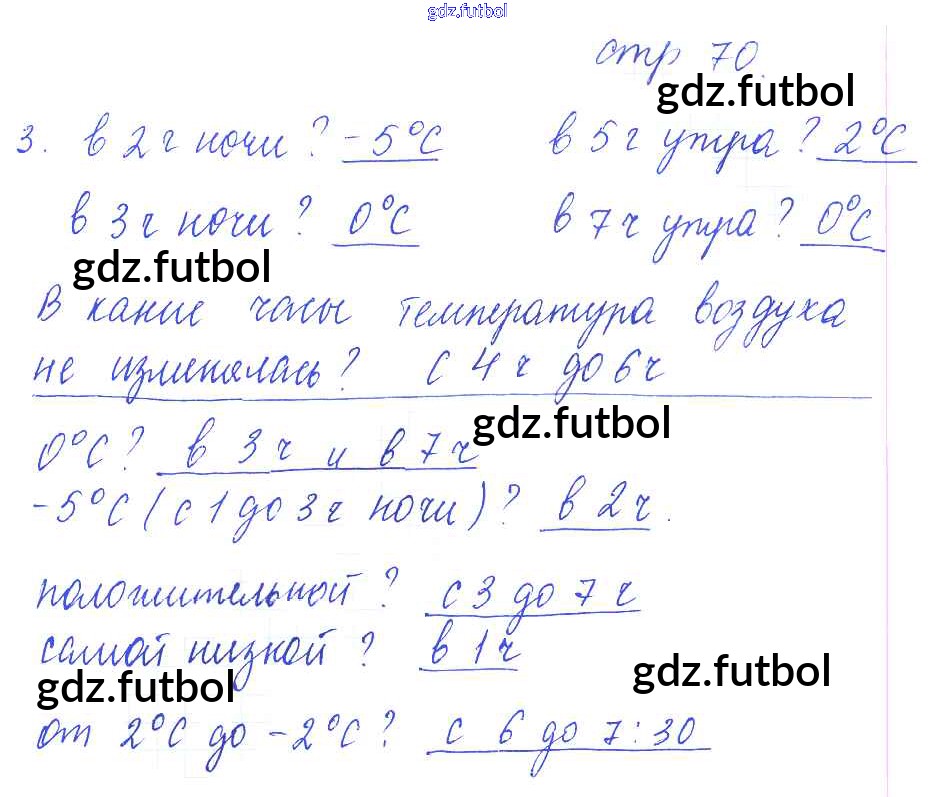 gdz.futbol
стр 70.
gdz.futbol
3. в 2 ч ночи? -5°C в 5 ч утра? 2°C
в 3 ч ночи? 0°C в 7 ч утра? 0°C
gdz.futbol
В какие часы температура воздуха
не изменялась? с 4 ч до 6 ч
gdz.futbol
0°C? в 3 ч и в 7 ч
-5°C (с 1 до 3 ч ночи)? в 2 ч.
положительной? с 3 до 7 ч
самой низкой? в 1 ч
gdz.futbol
gdz.futbol
от 2°C до -2°C? с 6 до 7:30